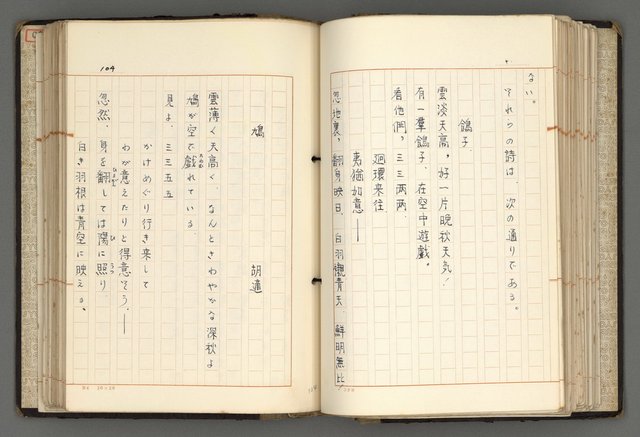 ない。
それらの詩は、次の通りである。
鴿子
雲淡天高，好一片晩秋天気！
有一羣鴿子，在空中遊戯。
看他們，三三両両，
廻環来往，
夷猶如意──
忽地裏，翻身映日，白羽襯青天，鮮明無比！
104
鳩
胡適
雲薄く天高く、なんとさわやかな深秋よ
鳩が空で戯れている
見よ、三三五五
かけめぐり行き来して
わが意えたりと得意そう。──
忽然、身を翻しては陽に照り
白き羽根は青空に映える。